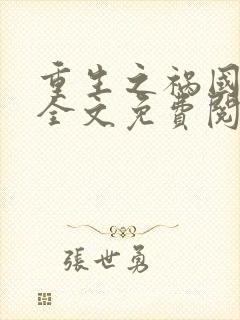 重生之禍國
全文免費閱
張世勇